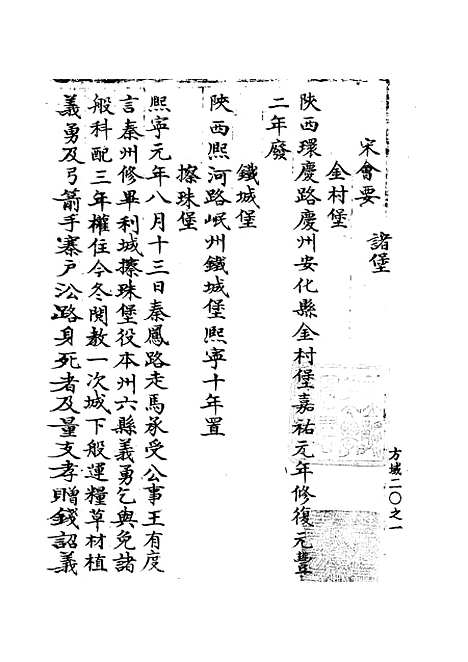 宋會要　諸堡
金村堡
陝西環慶路慶州安化縣金村堡嘉祐元年修復元豐
二年廢
鐵城堡
陝西熙河路岷州鐵城堡熙寧十年置
擦珠堡
熙寧元年八月十三日秦鳳路走馬承受公事王有度
言秦州修畢利城擦珠堡役本州六縣義勇乞與免諸
般科配三年權住今冬閱教一次城下般運糧草材植
義勇及弓箭手寨戶沿路身死者及量支孝贈錢詔義
方域二〇之一